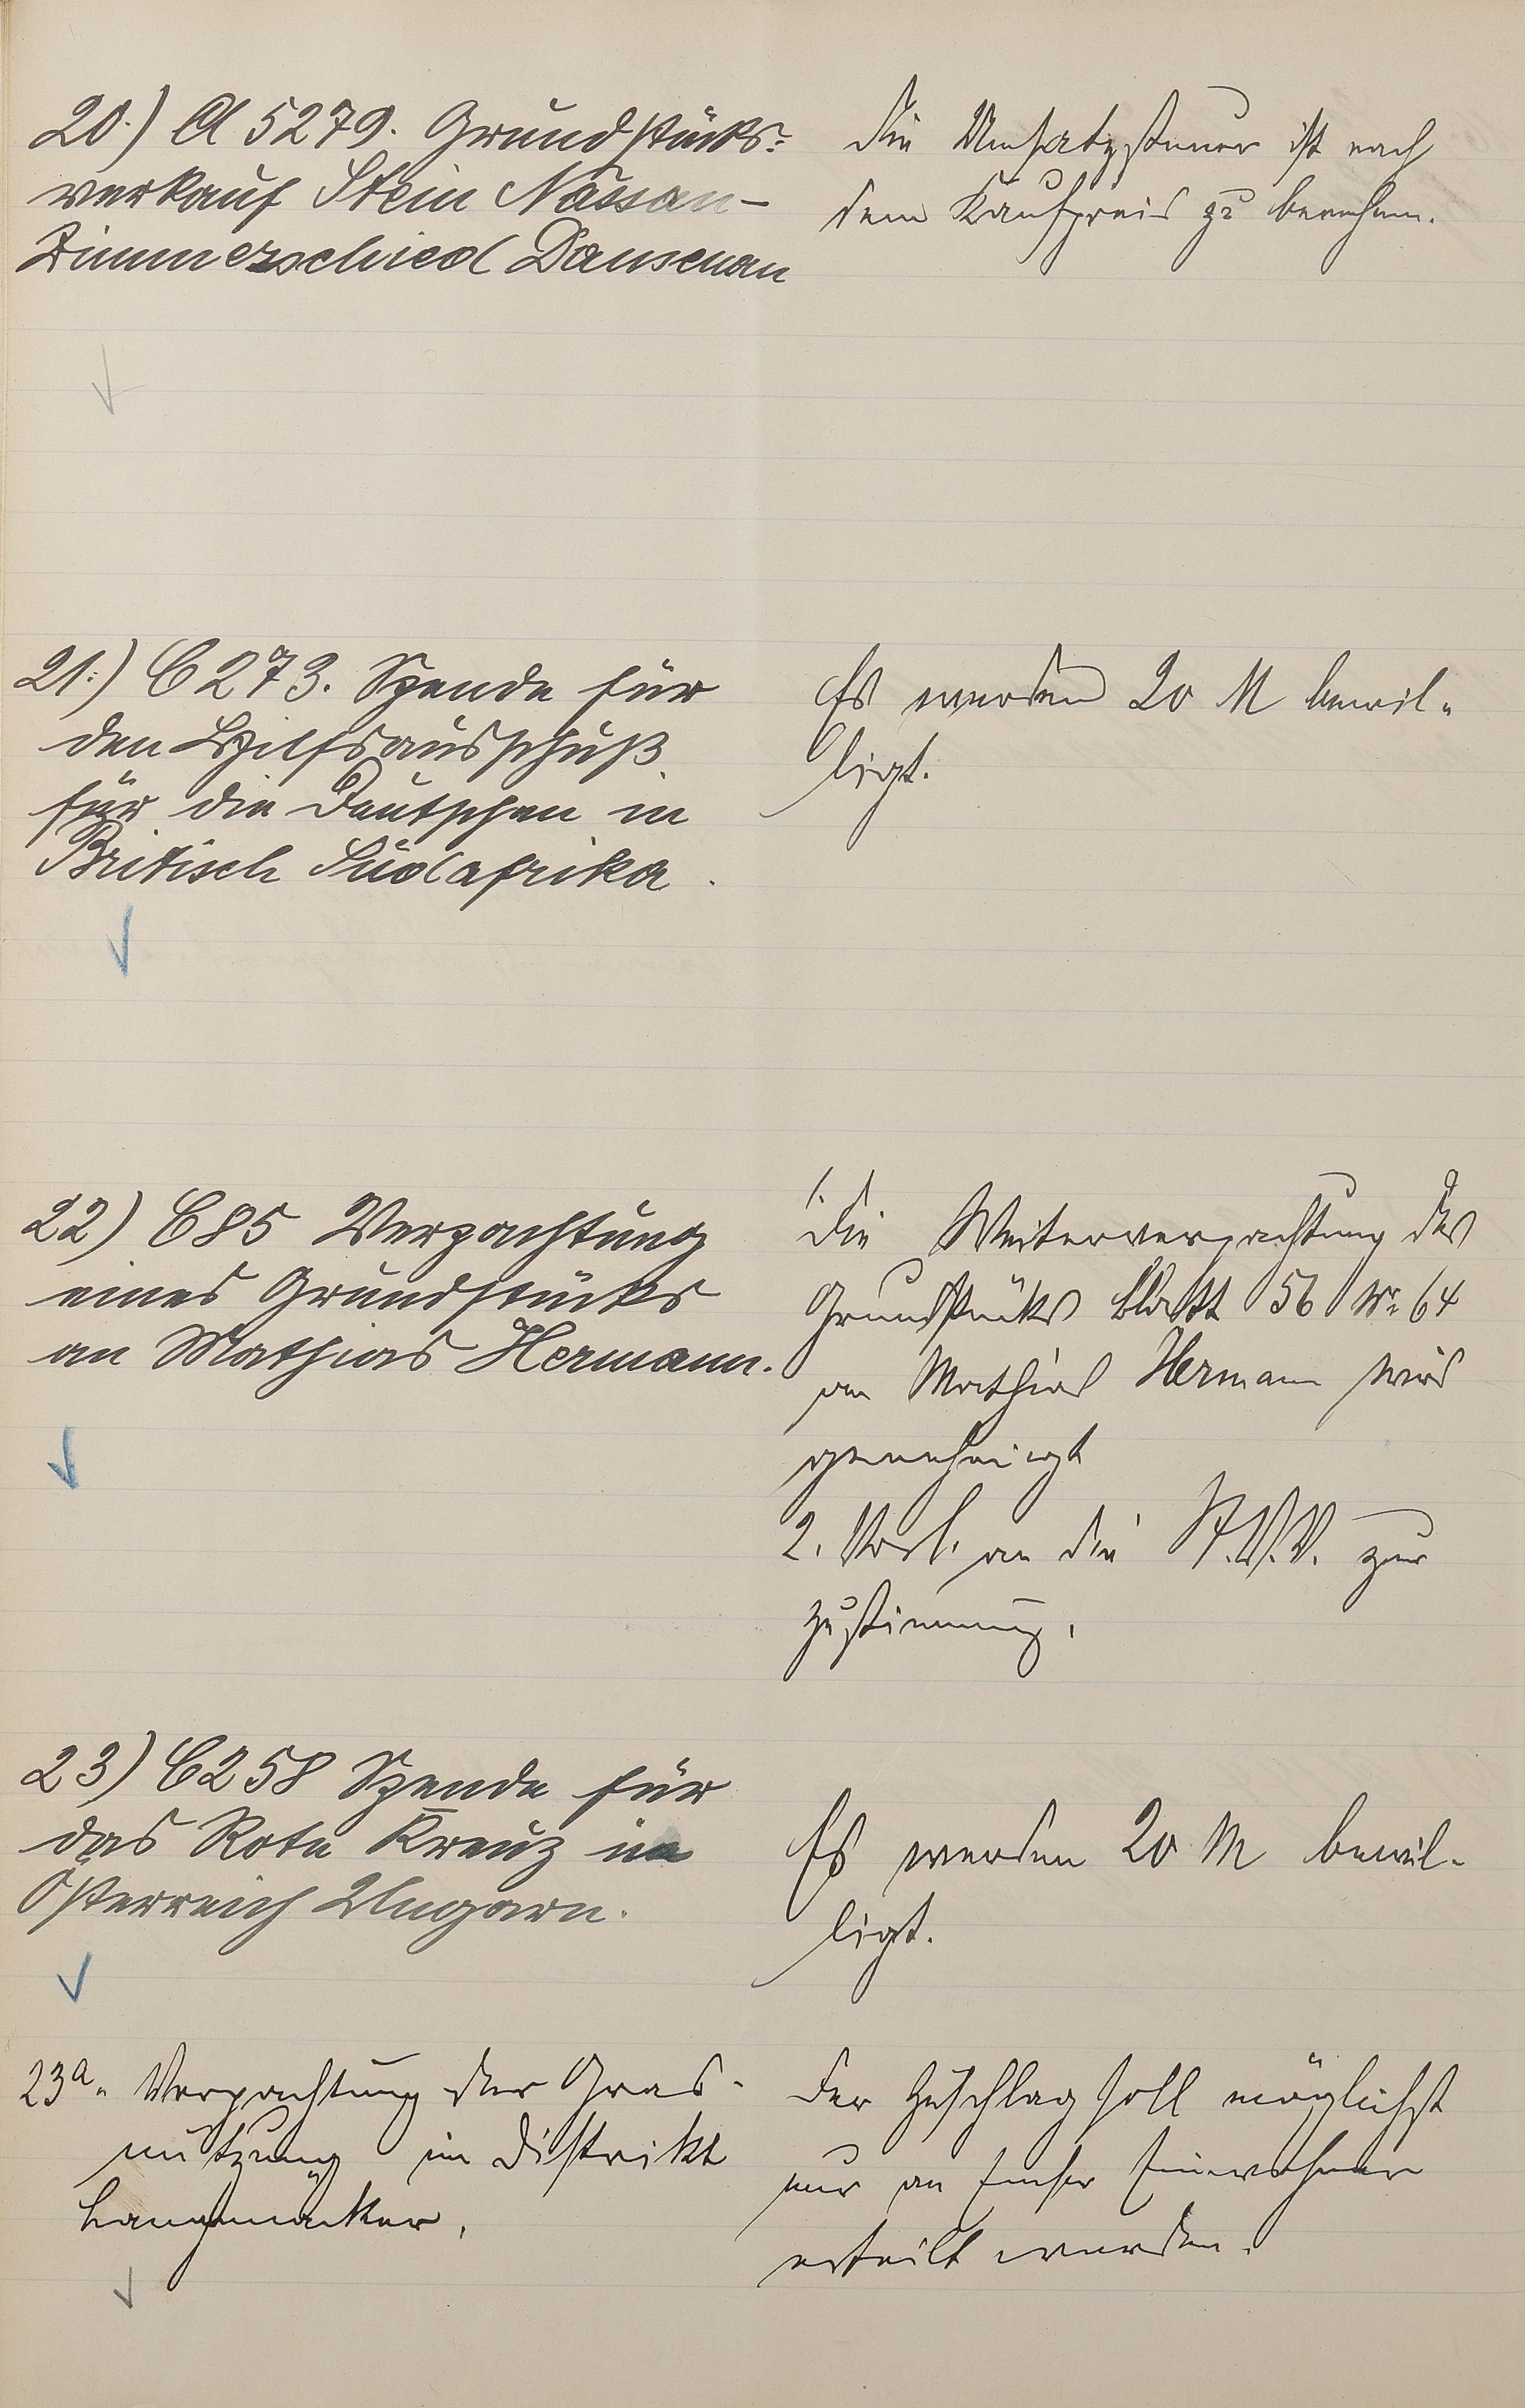 20.) A 5279. Grundstücks=
verkauf Stein Nassau-
Zimmerschied Dausenau
Die Umsatzsteuer ist nach
dem Kaufpreis zu berechnen.
21.) C 273. Spende für
den Hilfsausschuß
für die Deutschen in
Britisch Südafrika.
Es werden 20 M bewil-
ligt.
22) C 85 Verpachtung
eines Grundstücks
an Mathias Hermann.
1. Die Weiterverpachtung des
Grundstücks Blatt 56 Nr. 64
an Mathias Hermann wird
genehmigt
2. Vorl. an die St.V.V. zur
Zustimmung.
23) C 258 Spende für
das Rote Kreuz in
Österreich Ungarn.
Es werden 20 M bewil-
ligt.
23a. Verpachtung der Gras-
nutzung im Distrikt
Der Zuschlag soll möglichst
nur an Emser Einwohner
erteilt werden.